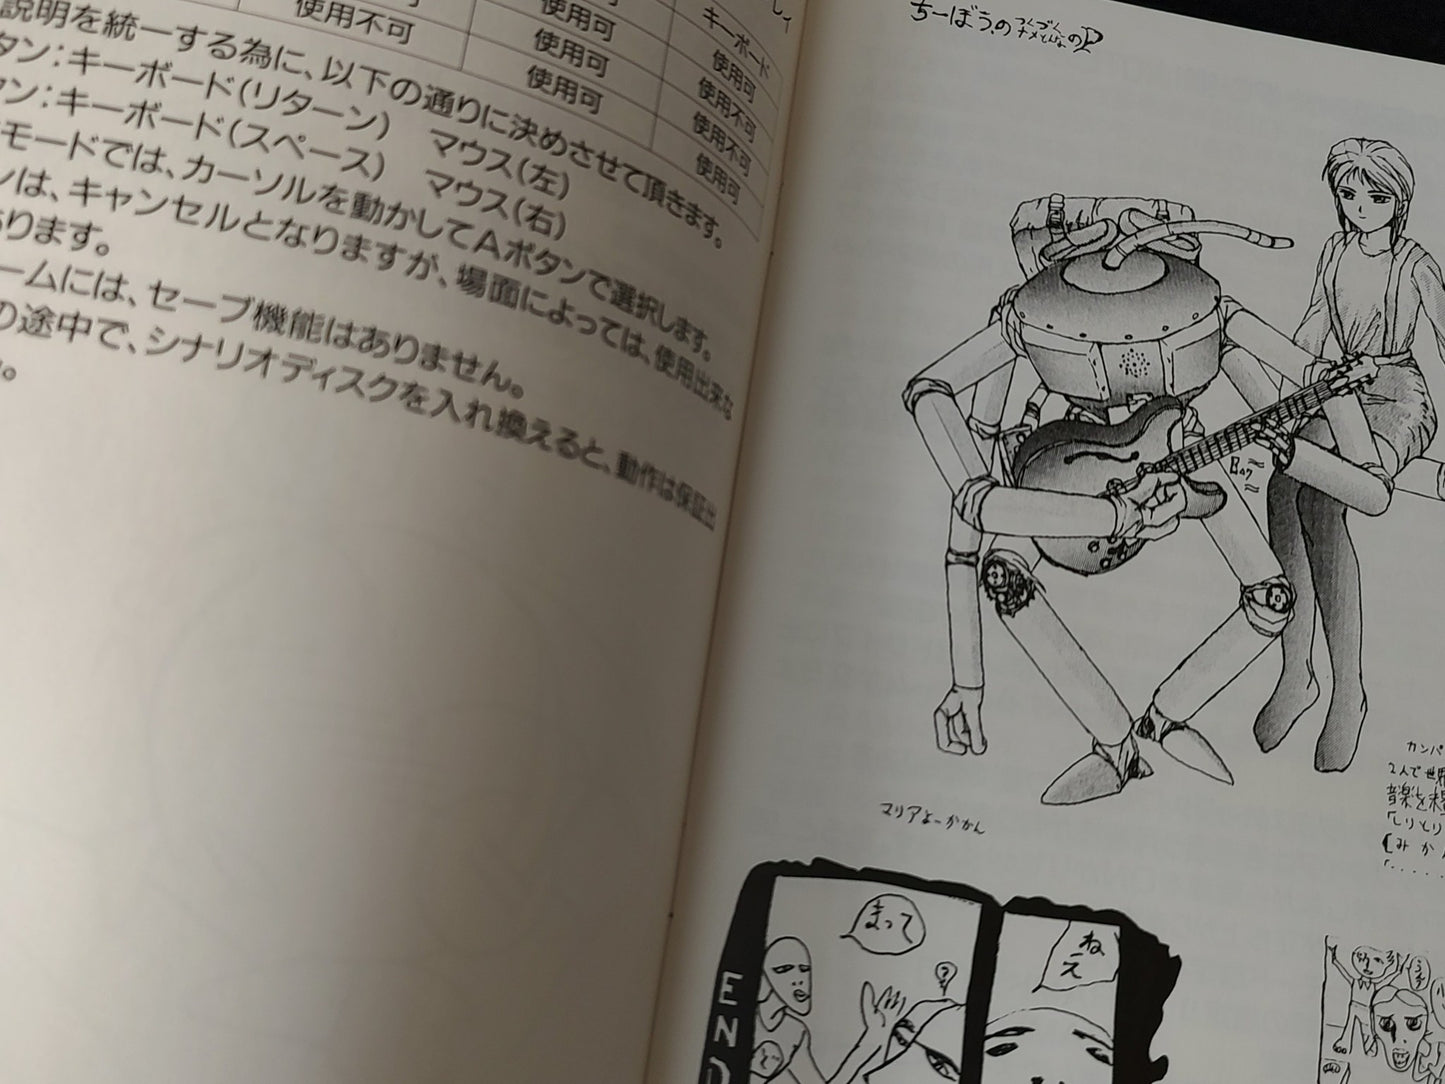 し、
キーボード
使用可 使用可
使用不可 使用可 使用不可
使用可 使用不可
使用可 使用可
説明を統一する為に、以下の通りに決めさせて頂きます。
タン：キーボード（リターン） マウス（左）
ン：キーボード（スペース） マウス（右）
モードでは、カーソルを動かしてAボタンで選択します。
ンは、キャンセルとなりますが、場面によっては、使用出来な
あります。
ームには、セーブ機能はありません。
の途中で、シナリオディスクを入れ換えると、動作は保証出
ん。
ちーぼう.の
マリアよーかかん
カンパ
2人で世界
音楽を
「しりとり
【みかん
「.....
まって
?
ねえ
END